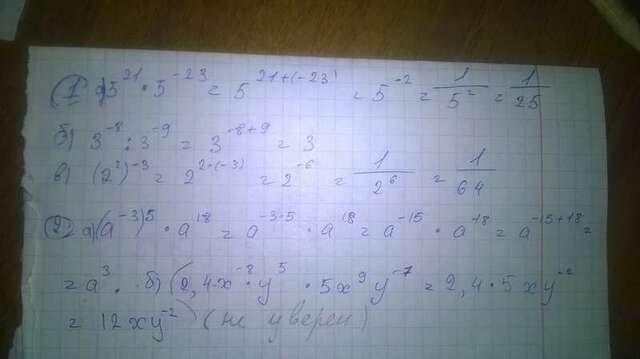 ① а) 5²¹ · 5⁻²³ = 5²¹⁺⁽⁻²³⁾ = 5⁻² = 1/5² = 1/25
б) 3⁻⁸ : 3⁻⁹ = 3⁻⁸⁺⁹ = 3
в) (2²)⁻³ = 2²·⁽⁻³⁾ = 2⁻⁶ = 1/2⁶ = 1/64
② а) (a⁻³)⁵ · a¹⁸ = a⁻³·⁵ · a¹⁸ = a⁻¹⁵ · a¹⁸ = a⁻¹⁵⁺¹⁸ =
= a³. б) (2,4·x⁻⁸ · y⁵ · 5x⁹y⁻⁷ = 2,4 · 5xy⁻²
= 12xy⁻²) (не уверен)